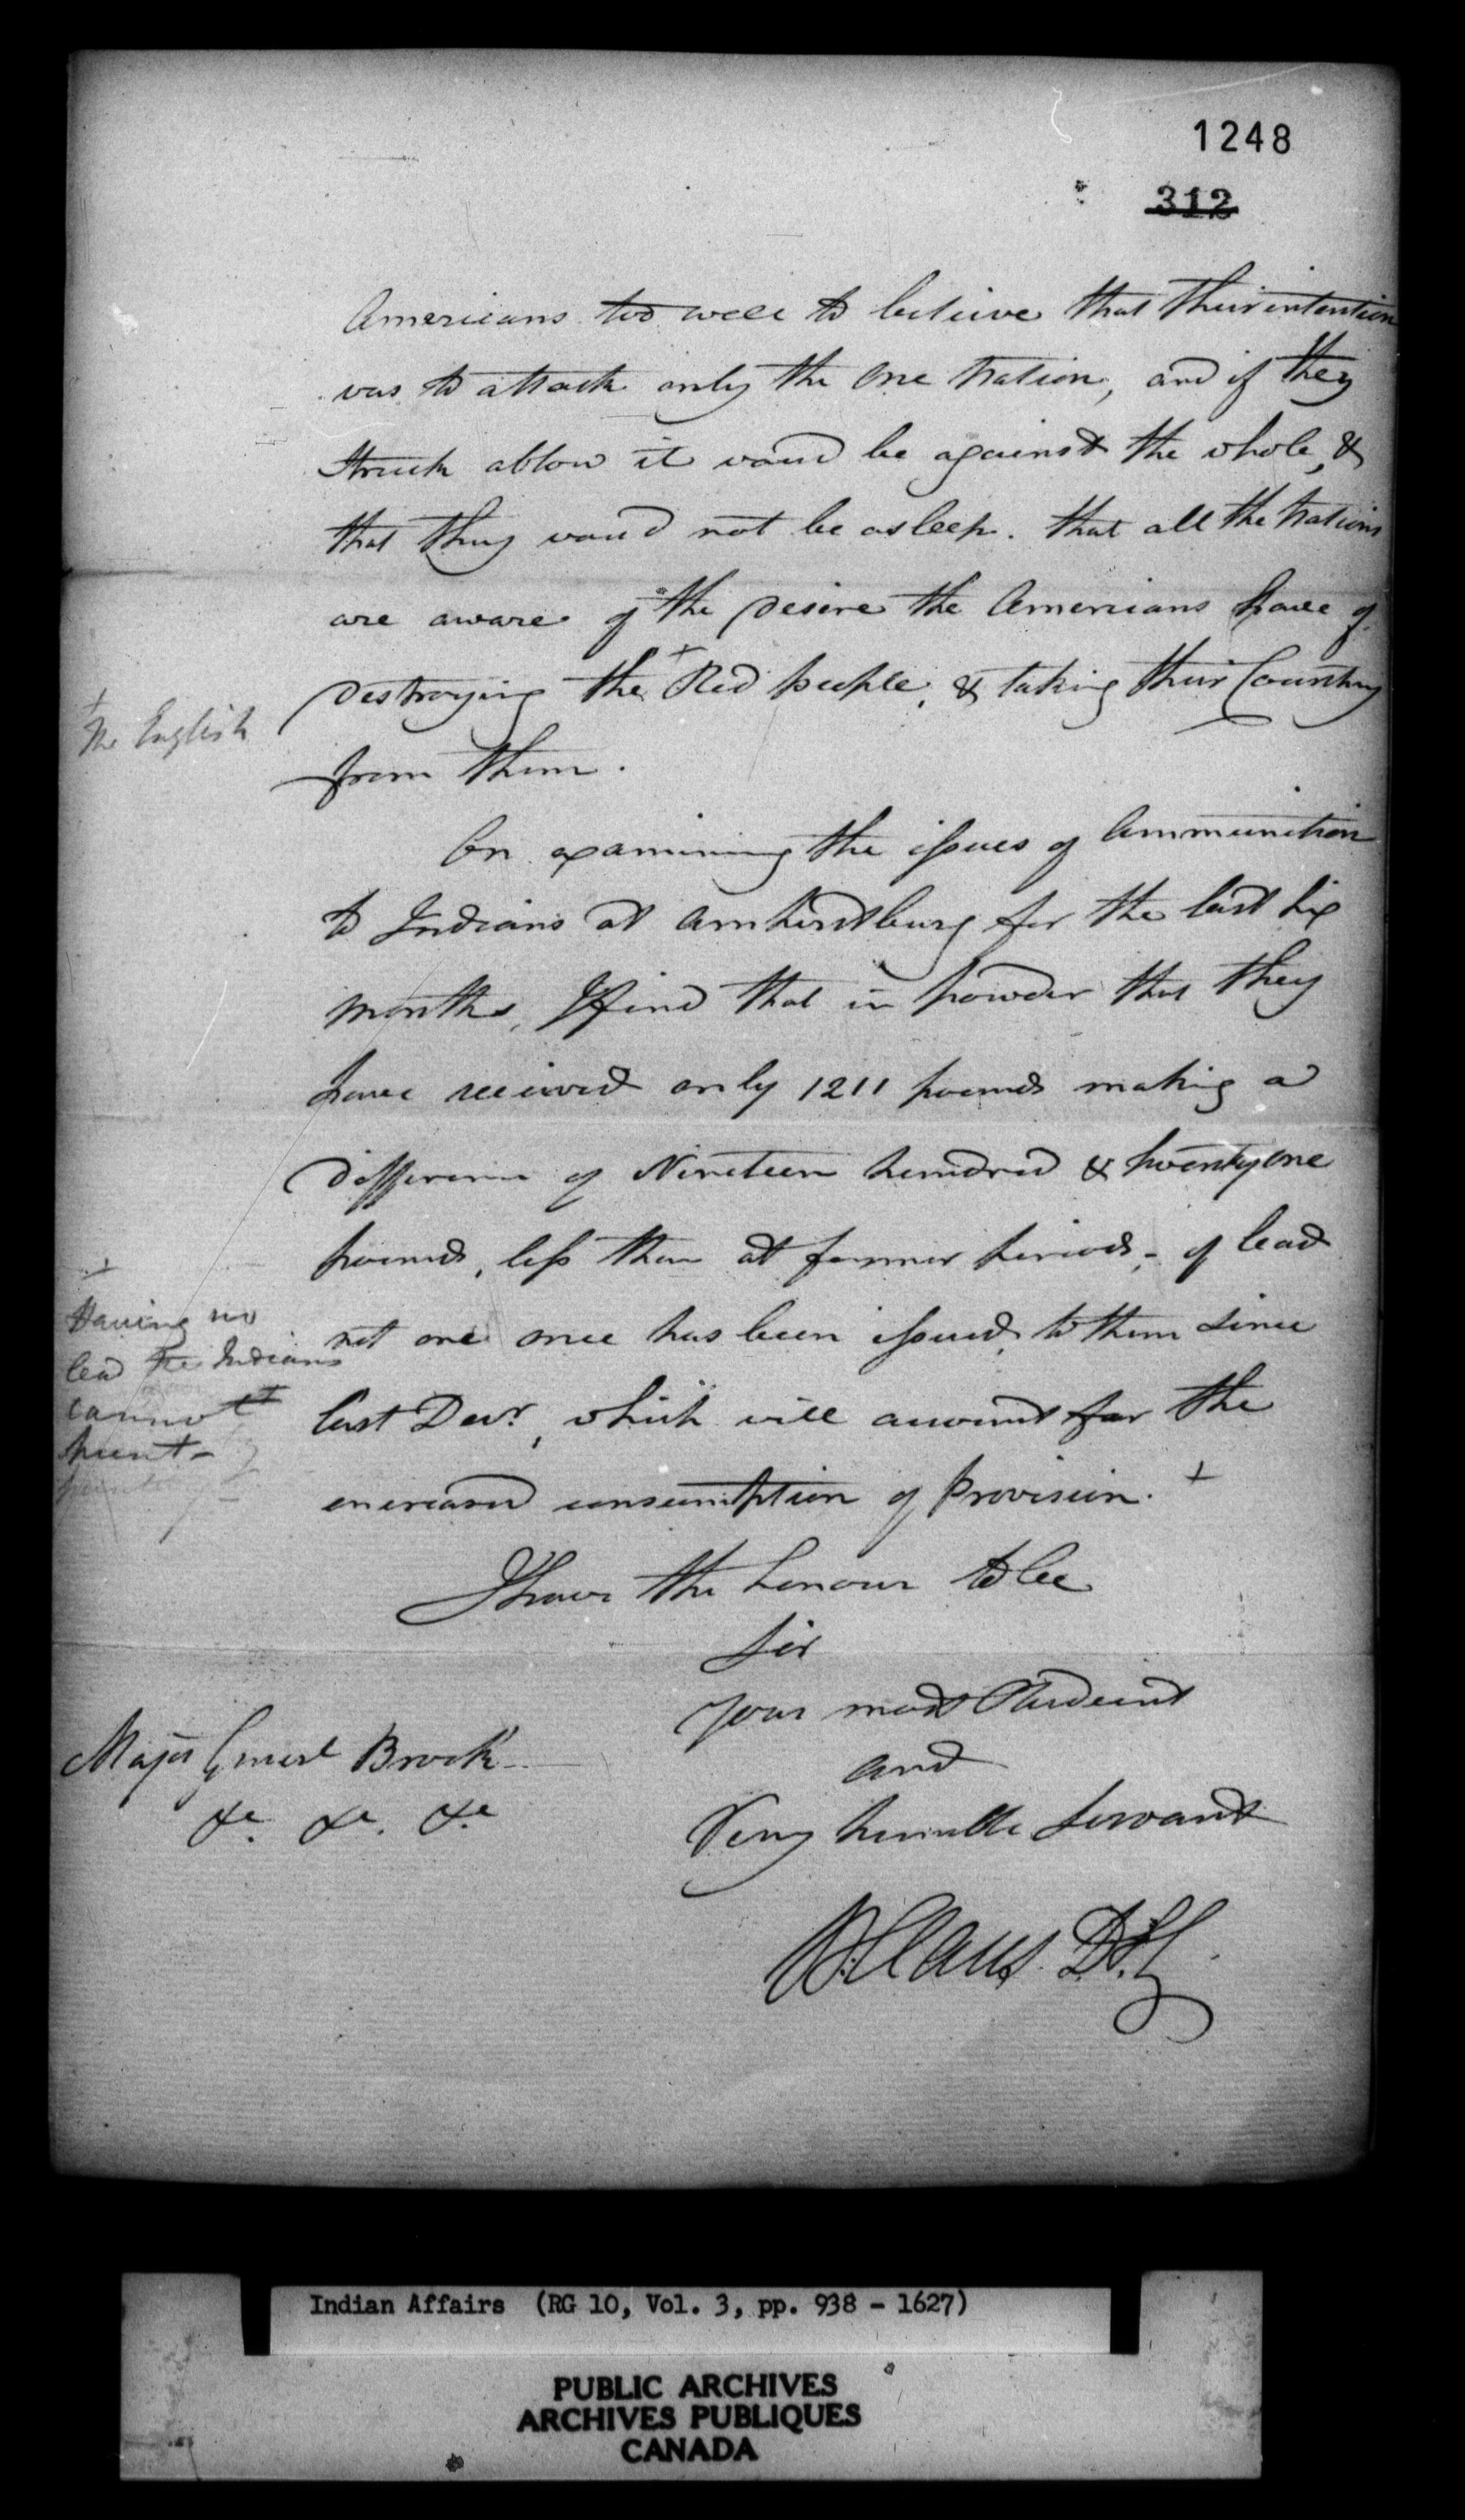 1248
312
Americans too well to believe that their intention
was to attack only the One Nation, and if they
struck a blow it wou'd be against the whole, &
that they wou'd not be asleep. that all the Nations
are aware of the Desire the Americans have of
Destroying the + Red people, & taking their Country
from them.
+
The English
On examining the issues of Ammunition
to Indians at Amherstburg for the last six
months, I find that in powder that they
have received only 1211 pounds making a
Difference of Nineteen hundred & twenty one
pounds, less than at former periods,- of lead
not one once has been issued, to them since
last Decr, which will account for the
encreased consumption of Provision. +
+
Having no
lead the Indians
cannot
hunt-
I have the honour to be
Sir
Your most Obedient
and
Very humble Servant
W. Claus. D.S.G.
Major Generl Brock
&c. &c. &c.
Indian Affairs (RG 10, Vol. 3, pp. 938 - 1627)
PUBLIC ARCHIVES
ARCHIVES PUBLIQUES
CANADA